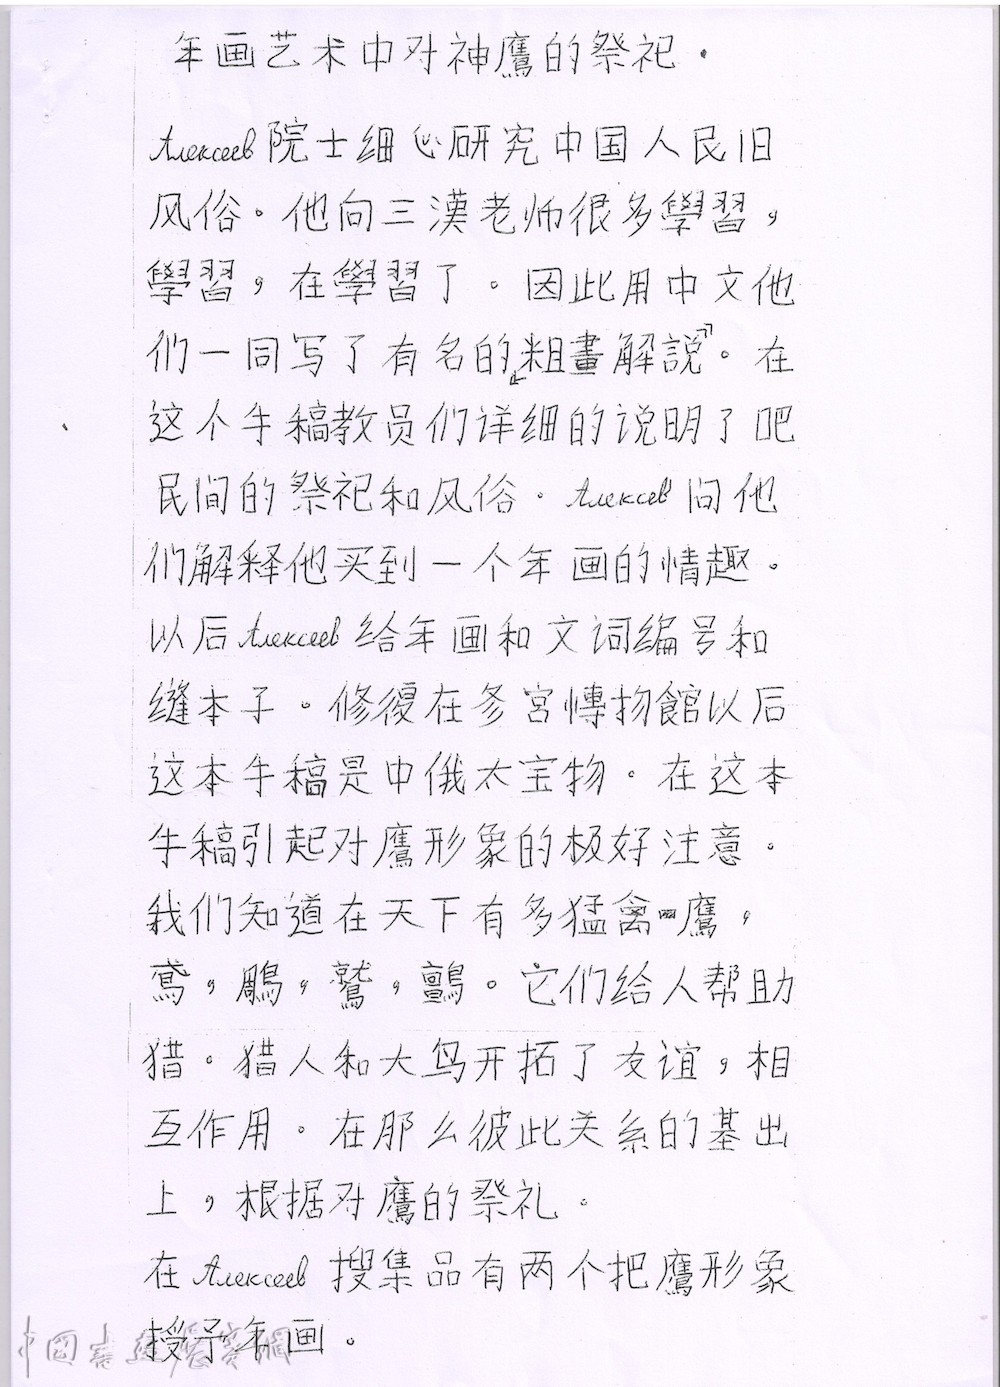 年画艺术中对神鹰的祭祀.
Алексеев院士细心研究中国人民旧
风俗。他向三漢老师很多學習，
學習，在學習了。因此用中文他
们一同写了有名的"粗畫解説"。在
这个手稿教员们详细的说明了吧
民间的祭祀和风俗.Алексеев问他
们解释他买到一个年画的情趣。
以后Алексеев给年画和文词编号和
缝本子。修復在冬宮博物館以后
这本手稿是中俄太宝物。在这本
手稿引起对鹰形象的极好注意.
我们知道在天下有多猛禽 鷹，
鳶，鵰，鷲，鸇。它们给人帮助
猎。猎人和大鸟开拓了友谊，相
互作用.在那么彼此关系的基出
上，根据对鷹的祭礼.
在Алексеев搜集品有两个把鷹形象
授予年画。
中国